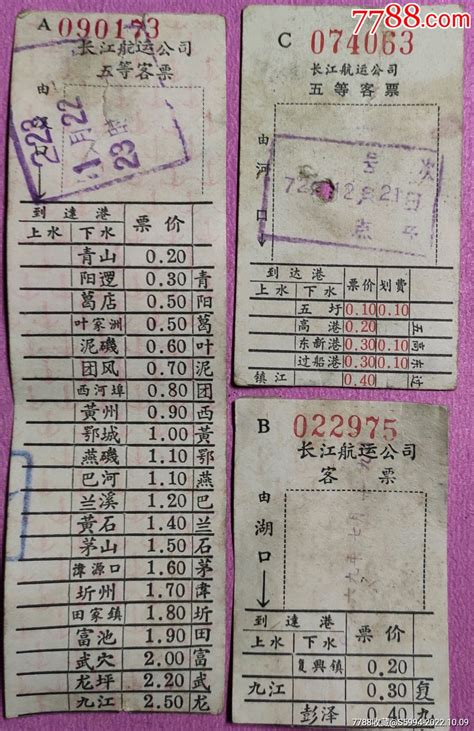 7788.com
A 090173
长江航运公司
五等客票
由
223
1月22
23
到達港 票价
上水 下水
青山 0.20
阳逻 0.30 青
葛店 0.50 阳
叶家洲 0.50 葛
泥磯 0.60 叶
团风 0.70 泥
西河埠 0.80 团
黄州 0.90 西
鄂城 1.00 黄
燕磯 1.10 鄂
巴河 1.10 燕
兰溪 1.20 巴
黄石 1.40 兰
茅山 1.50 石
漳源口 1.60 茅
圻州 1.70 漳
田家镇 1.80 圻
富池 1.90 田
武穴 2.00 富
龙坪 2.20 武
九江 2.50 龙
C 074063
长江航运公司
五等客票
由河口
号 次
12月21日
点
到达港 票价 划费
上水 下水
五圩 0.10 0.10
高港 0.20 五
东新港 0.30 0.10 高
过船港 0.30 0.10 东
镇江 0.40 过
B 022975
长江航运公司
客票
由湖口
到達港 票价
上水 下水
复興镇 0.20
九江 0.30 复
彭泽 0.40 九
7788收藏@S5994 2022.10.09